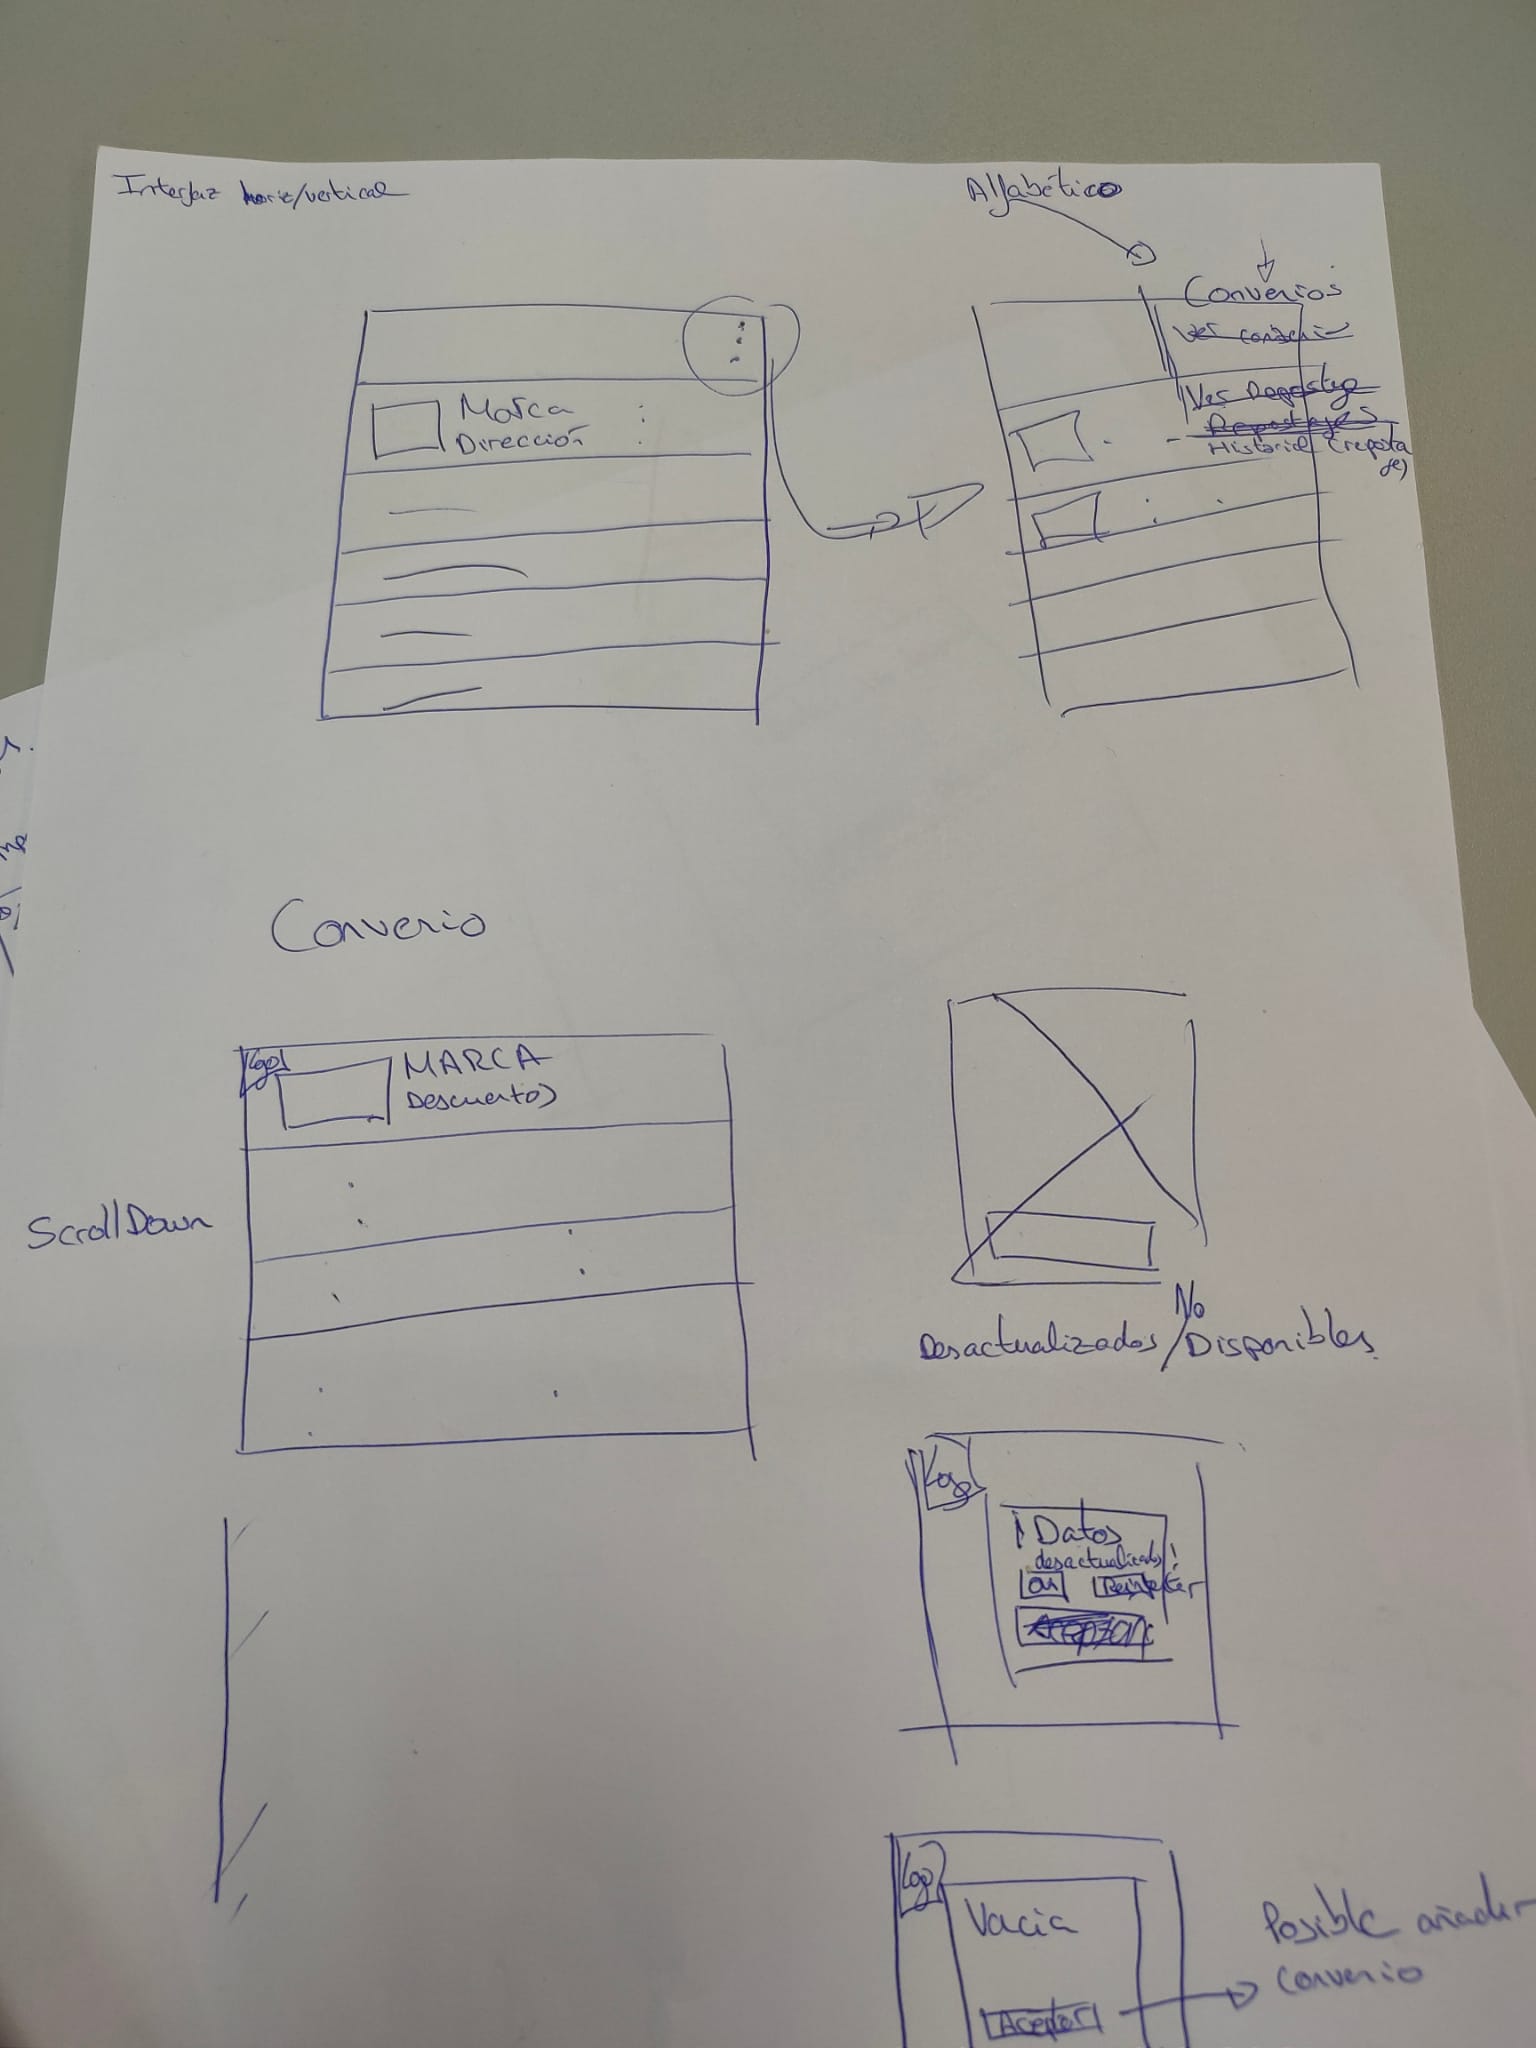 Interfaz horiz/vertical
Alfabético
Convenios
Ver convenio
Ver Repostaje
Repostajes
Historial (reposta
je)
Marca
Dirección
Convenio
logo
MARCA
Descuentos
ScrollDown
No
Desactualizados/Disponibles
Logo
¡Datos
desactualizados!
Ok
Reintentar
Logo
Vacia
Aceptar
Posible añadir
convenio